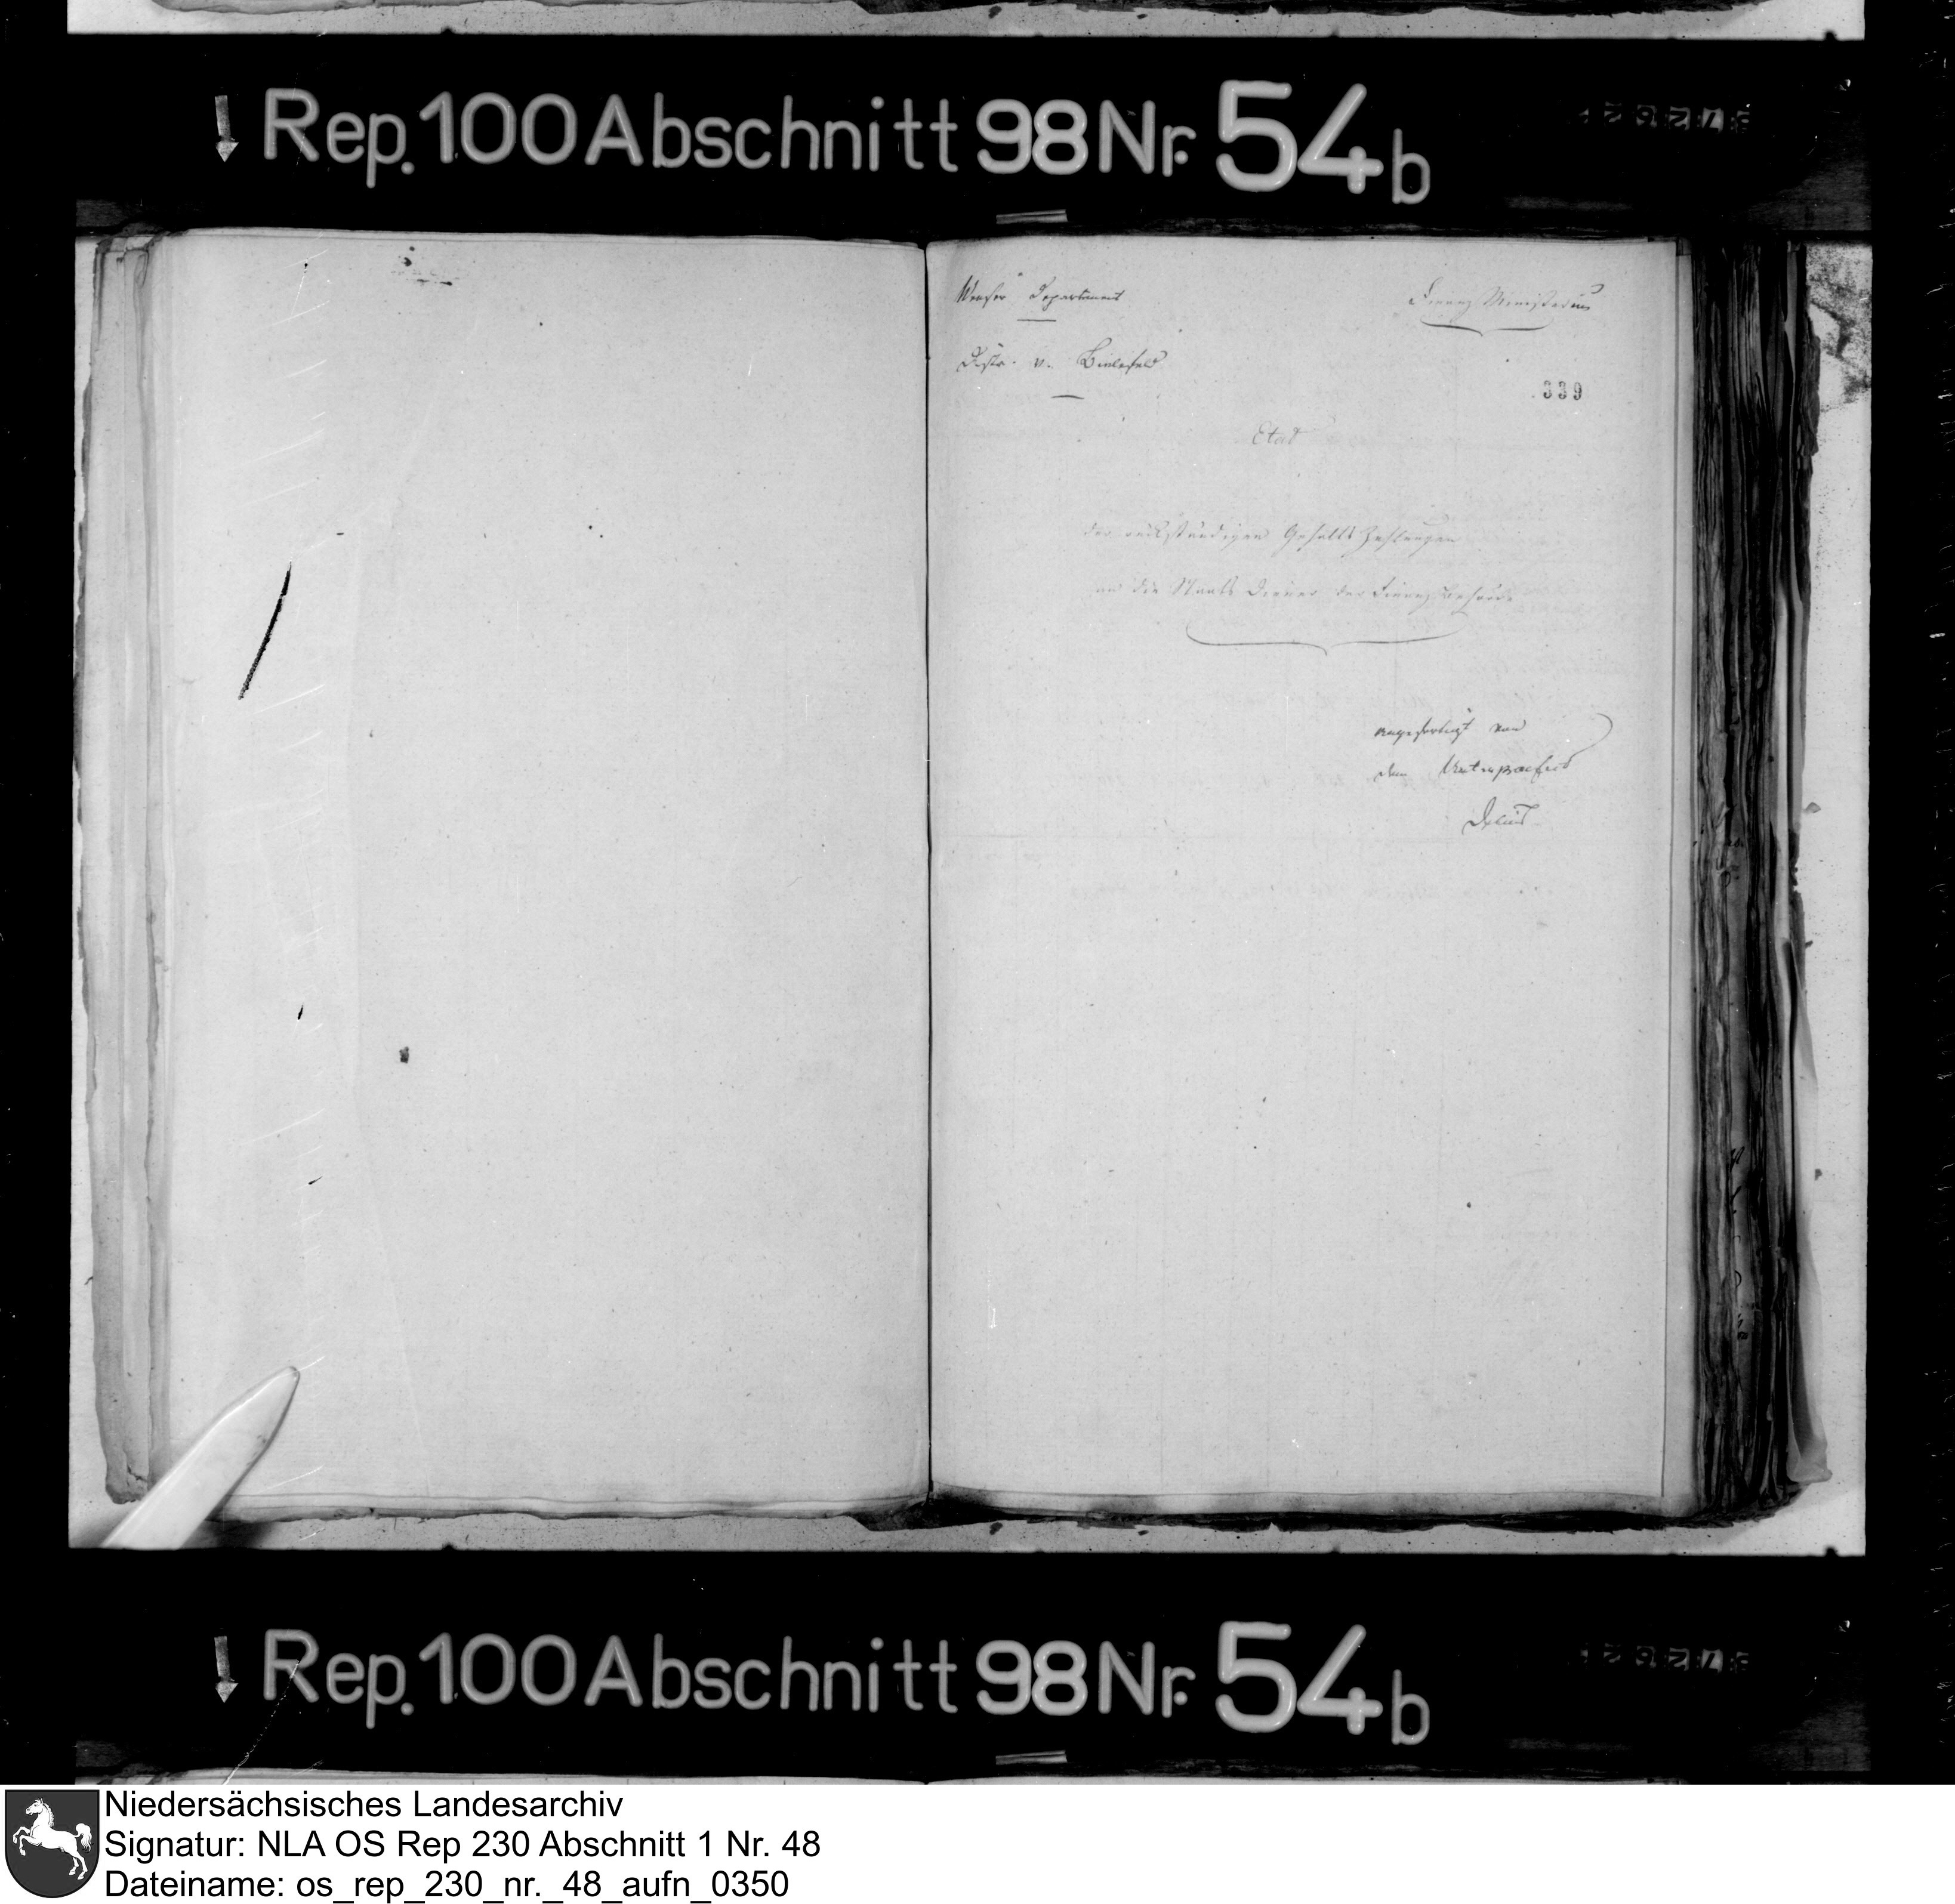 Rep. 100 Abschnitt 98 Nr. 54b
Weser Departement
Finanz Ministerium
Distr. v. Bielefeld
339
Etat
der rückständigen Gehalts Zahlungen
an die Staats Diener der Finanz Behörde
angefertigt von
dem Unterpraefect
Delius
Rep. 100 Abschnitt 98 Nr. 54b
Niedersächsisches Landesarchiv
Signatur: NLA OS Rep 230 Abschnitt 1 Nr. 48
Dateiname: os_rep_230_nr._48_aufn_0350